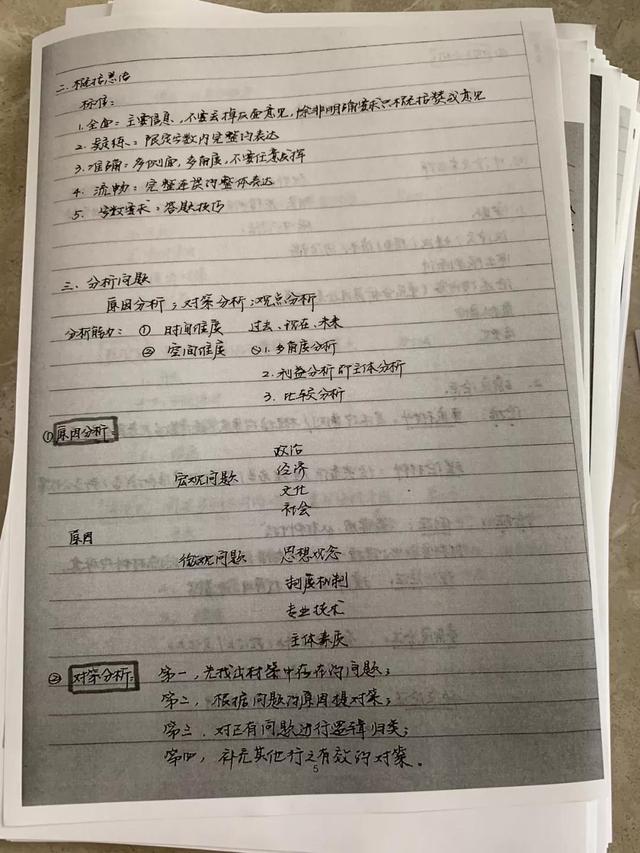 二、概括总结
标准：
1. 全面：主要信息，不要去掉反面意见，除非明确要求只概括赞成意见
2. 凝练：限定字数内完整的表达
3. 准确：多侧面，多角度，不要任意发挥
4. 流畅：完整连误的整体表达
5. 字数要求：答题技巧
三、分析问题
原因分析；对策分析；观点分析
分析能力：① 时间维度 过去、现在、未来
② 空间维度 ②1. 多角度分析
2. 利益分析即主体分析
3. 比较分析
①原因分析：
政治
宏观问题 经济
文化
社会
原因
微观问题 思想观念
制度机制
专业技术
主体素质
② 对策分析： 第一，先找出材料中存在的问题；
第二，根据问题的原因提对策；
第三，对已有问题进行逻辑归类；
第四，补充其他行之有效的对策。
5